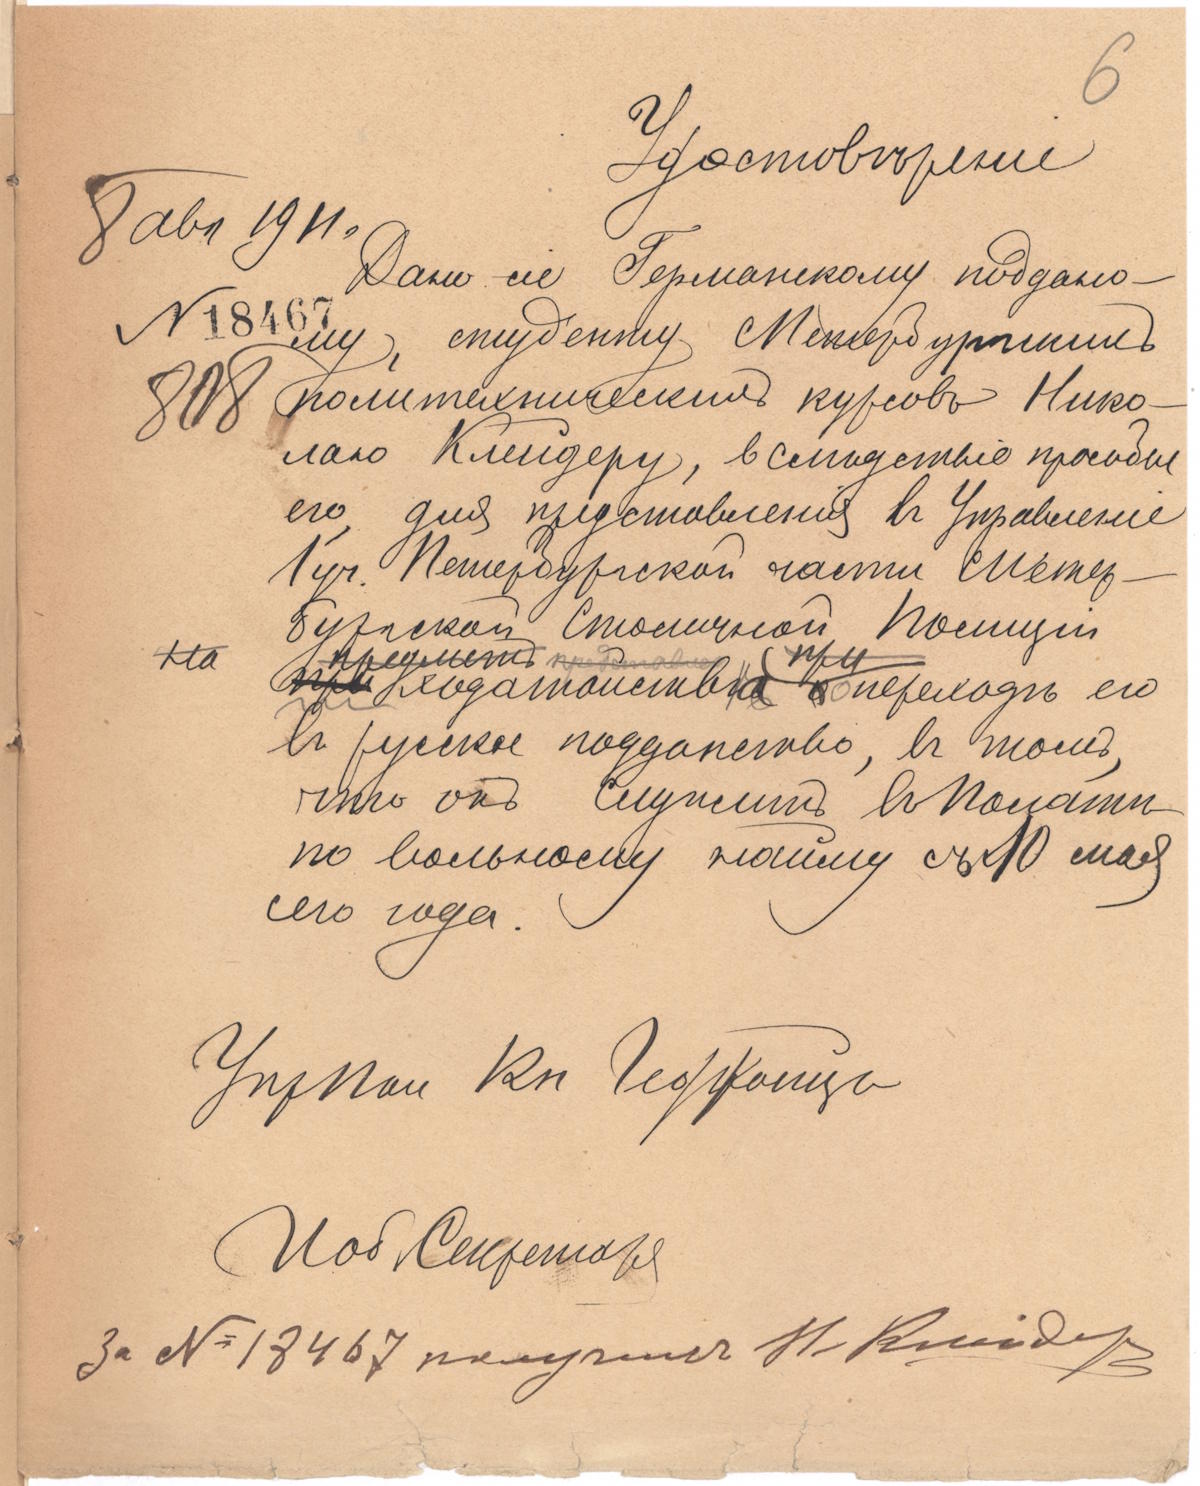 6
Удостовѣреніе
8 авг 1911.
Дано сіе Германскому поддано-
N 18467
му, студенту СПетербургскихъ
политехническихъ курсовъ Нико-
лаю Клейдеру, вслѣдствіе прособы
его, для представленія въ Управленіе
1 уч. Петербургской части СПетер-
бургской Столичной Полиціи
на предметъ при
при ходатайства о переходѣ его
въ русское подданство, въ томъ,
что онъ служитъ въ Палатѣ
по вольному найму съ 10 мая
сего года.
Упр Пал Кн
И об Секретаря
За № 18467 получилъ Н. Клейдеръ